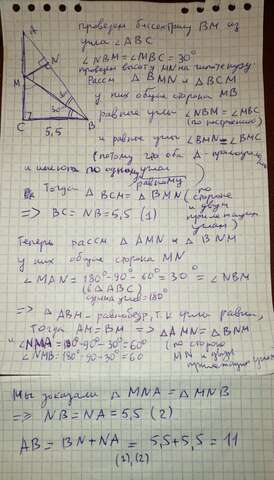 проведем биссектрису BM из
угла ∠ABC
∠NBM = ∠MBC = 30°
проведем высоту MN на гипотенузу
Рассм △BMN и △BCM
у них общая сторона MB
равные углы ∠NBM = ∠MBC
(по построению)
и равные углы ∠BMN = ∠BMC
(потому что оба △ - прямоуг
и имеют по одному равному углу)
Тогда △BCM = △BMN (по
стороне
и двум
прилежащим
углам)
=> BC = NB = 5,5 (1)
Теперь рассм △AMN и △BNM
у них общая сторона MN
∠MAN = 180° - 90° - 60° = 30° = ∠NBM
(в △ABC
сумма углов = 180°)
=> △ABM - равнобедр, т.к. углы равны,
Тогда AM = BM => △AMN = △BNM
и ∠NMA = 180° - 90° - 30° = 60° (по стороне
∠NMB = 180° - 90 - 30° = 60 MN и двум
прилежащим углам
Мы доказали △MNA = △MNB
=> NB = NA = 5,5 (2)
AB = BN + NA = 5,5 + 5,5 = 11
(1), (2)
A
N
M
C
B
30°
5,5